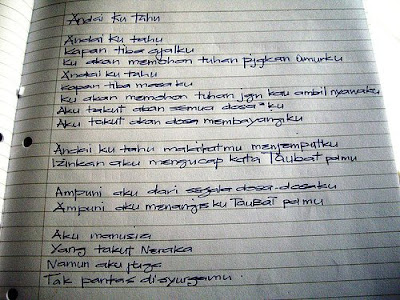 Andai ku tahu
Andai ku tahu
Kapan tiba ajalku
Ku akan memohon tuhan pjgkan umurku
Andai ku tahu
Kapan tiba masaku
Ku akan memohon tuhan jgn kau ambil nyawaku
Aku takut akan semua dosa²ku
Aku takut akan dosa membayangiku
Andai ku tahu malaikatmu menjemputku
Izinkan aku mengucap kata Taubat pdmu
Ampuni aku dari segala dosa-dosaku
Ampuni aku menangis ku Taubat pdmu
Aku manusia
Yang takut Neraka
Namun aku juga
Tak pantas disyurgamu